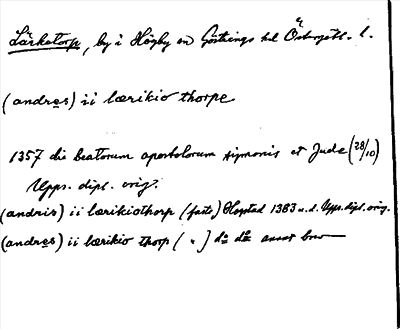 Lärketorp, by i Högby sn Göstrings hd Östergötl. l.
(andres) ii lærikio thorpe
1357 die beatorum apostolorum symonis et Jude (28/10)
Upps. dipl. orig.
(andris) ii lærikiothorp (fasta) Skepstad 1383 u.d. Upps. dipl. orig.
(andres) ii lærikio thorp ( " ) do do annat brev